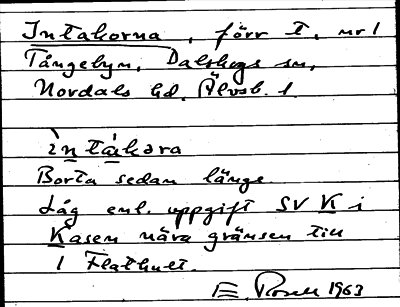 Intakorna, förr t. nr 1
Tångebyn, Dalskogs sn,
Nordals hd. Älvsb. l.
ìntákɔra
Borta sedan länge.
Låg enl. uppgift SV K i
Kasen nära gränsen till
1 Flathult.
E. 1963